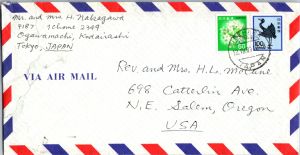 Mr. and Mrs. H. Nakagawa
Ogawamachi, Kodairashi
Tokyo, JAPAN
VIA AIR MAIL
Rev. and Mrs. H.L.
698 Catterlin Ave.
N.E. Salem, Oregon
USA
60
100
JAPAN